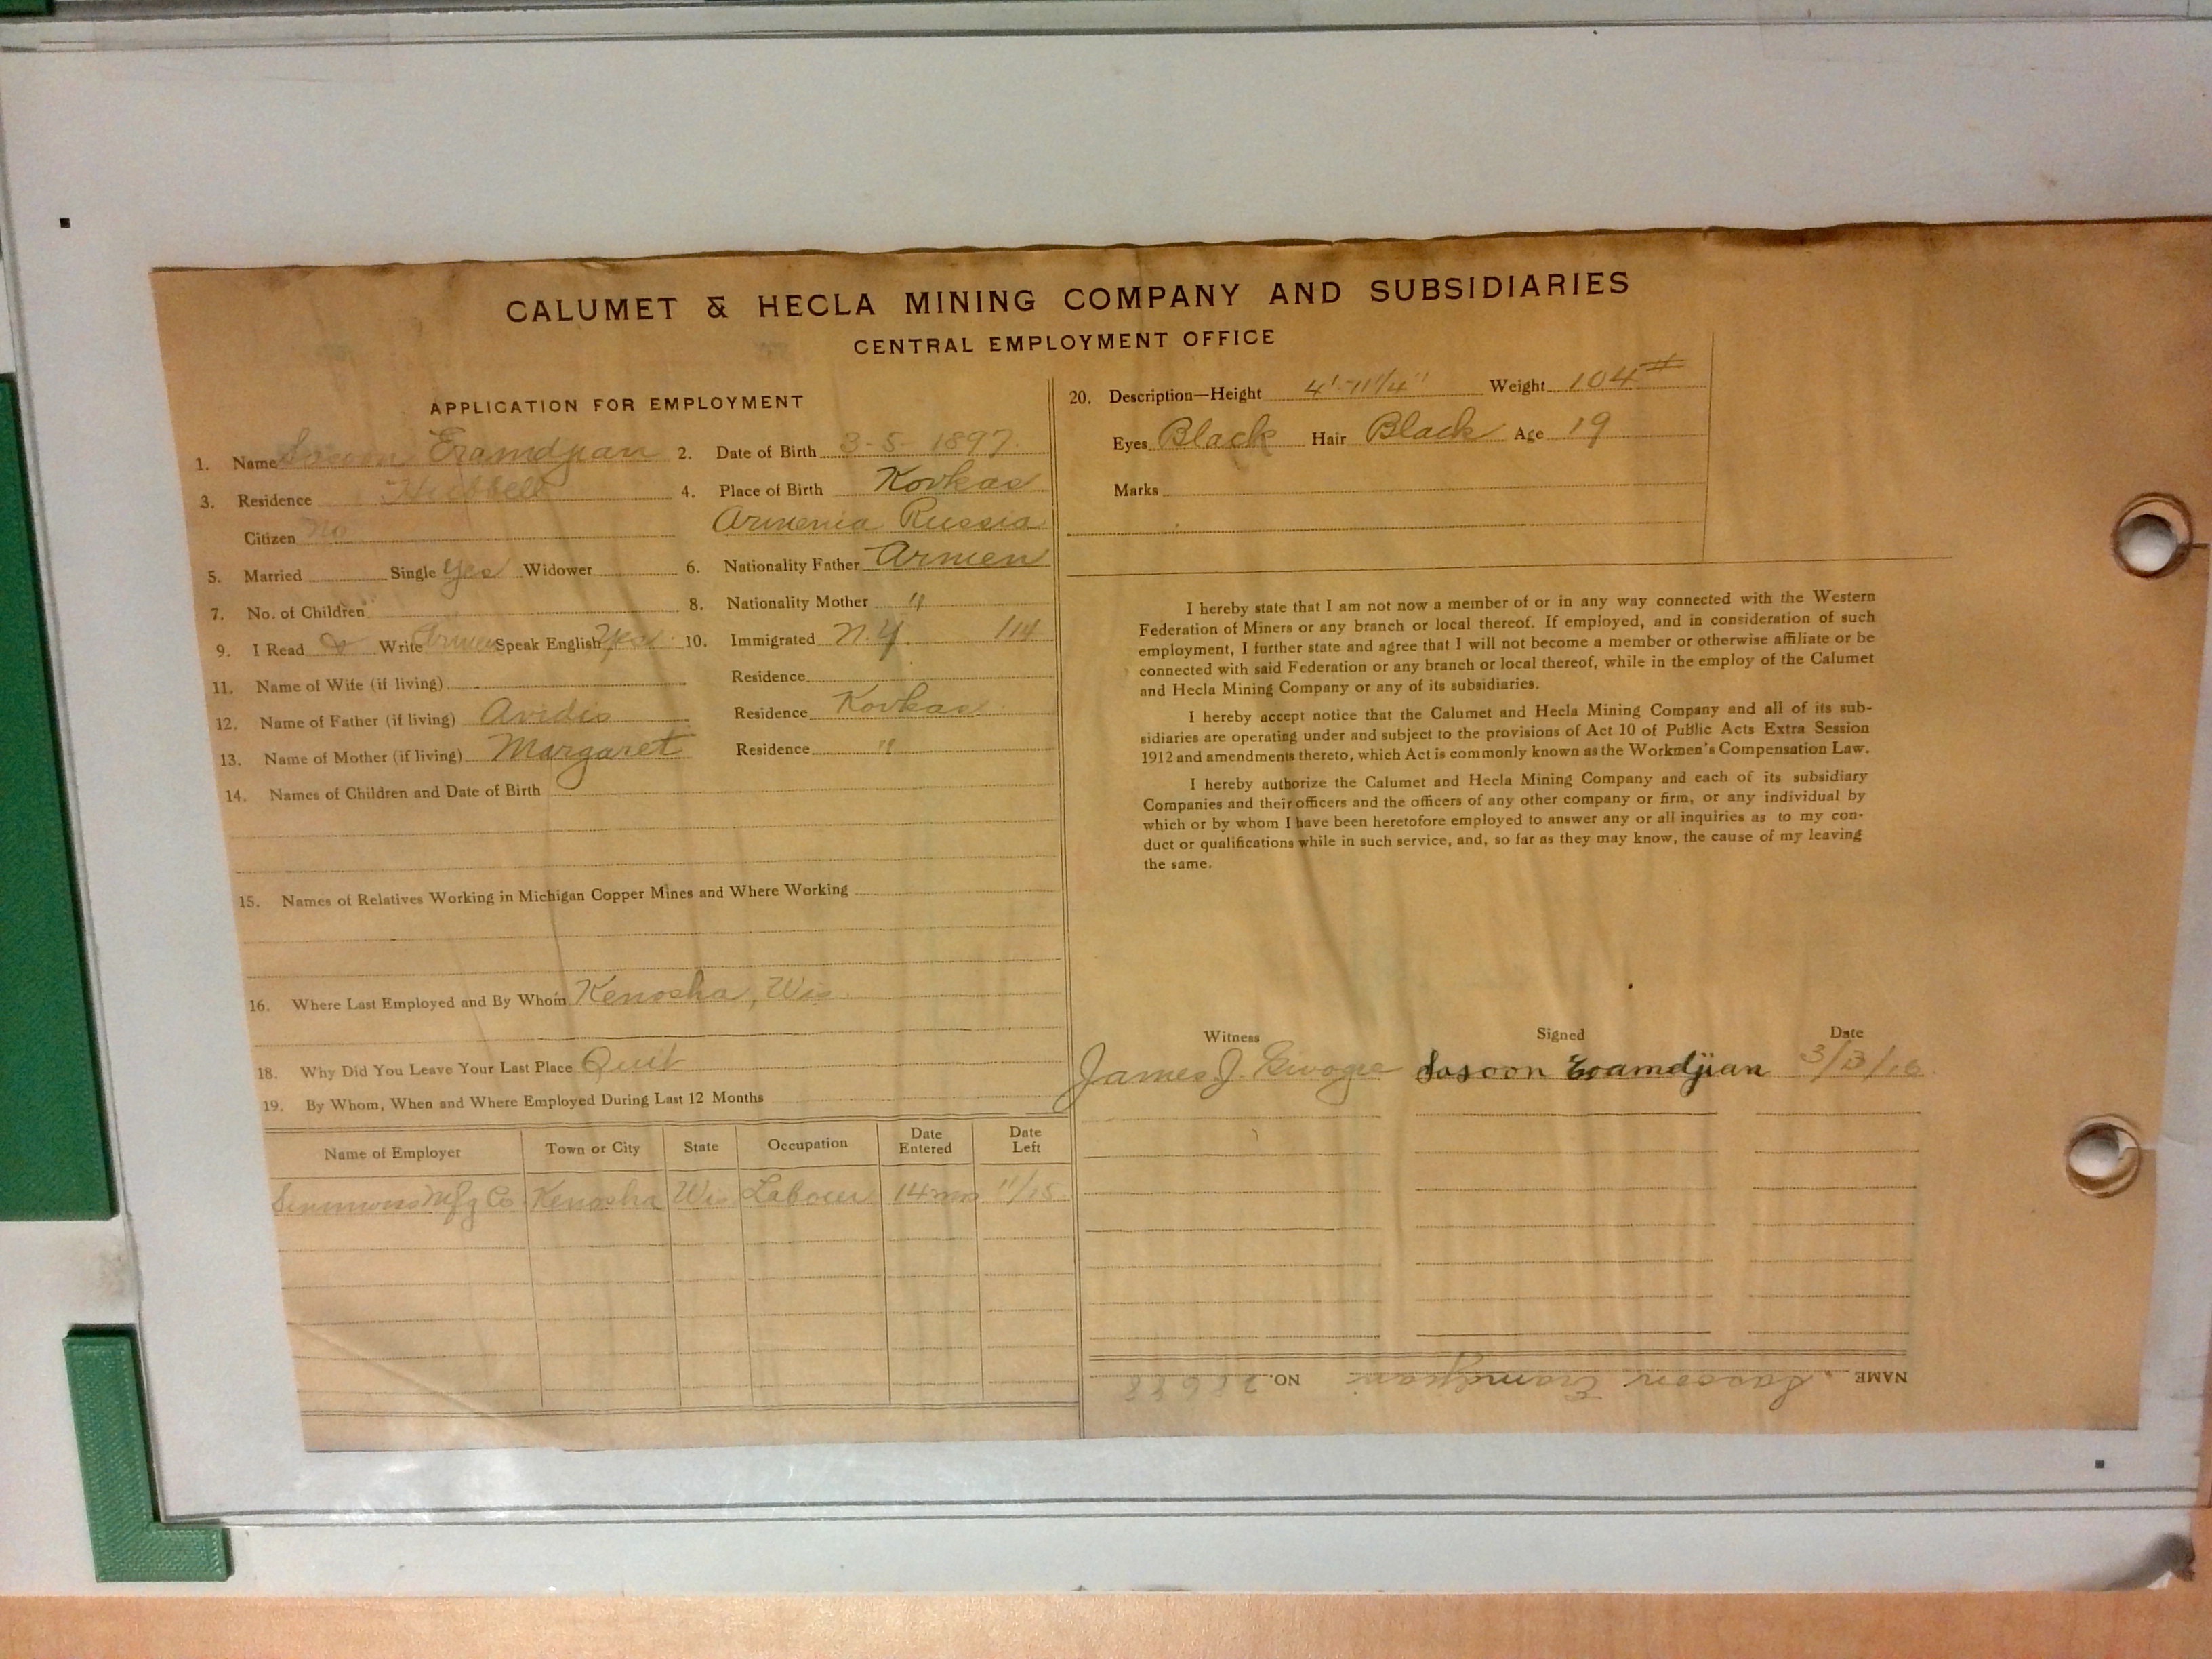 CALUMET & HECLA MINING COMPANY AND SUBSIDIARIES
CENTRAL EMPLOYMENT OFFICE
APPLICATION FOR EMPLOYMENT
1. Name Sasoon Eramdjian 2. Date of Birth 3-5-1897.
3. Residence Hubbell 4. Place of Birth Kovkas
Citizen No Armenia Russia
5. Married Single Yes Widower 6. Nationality Father Armen
7. No. of Children 8. Nationality Mother "
9. I Read & Write Armen Speak English Yes 10. Immigrated N.Y. 1/14
11. Name of Wife (if living) Residence
12. Name of Father (if living) Avidis Residence Kovkas
13. Name of Mother (if living) Margaret Residence "
14. Names of Children and Date of Birth
15. Names of Relatives Working in Michigan Copper Mines and Where Working
16. Where Last Employed and By Whom Kenosha, Wis
18. Why Did You Leave Your Last Place Quit
19. By Whom, When and Where Employed During Last 12 Months
Name of Employer Town or City State Occupation Date Entered Date Left
Simmons Mfg Co. Kenosha Wis Labourer 14 mo 11/15
20. Description—Height 4'-11 1/4" Weight 104 #
Eyes Black Hair Black Age 19
Marks
I hereby state that I am not now a member of or in any way connected with the Western
Federation of Miners or any branch or local thereof. If employed, and in consideration of such
employment, I further state and agree that I will not become a member or otherwise affiliate or be
connected with said Federation or any branch or local thereof, while in the employ of the Calumet
and Hecla Mining Company or any of its subsidiaries.
I hereby accept notice that the Calumet and Hecla Mining Company and all of its sub-
sidiaries are operating under and subject to the provisions of Act 10 of Public Acts Extra Session
1912 and amendments thereto, which Act is commonly known as the Workmen's Compensation Law.
I hereby authorize the Calumet and Hecla Mining Company and each of its subsidiary
Companies and their officers and the officers of any other company or firm, or any individual by
which or by whom I have been heretofore employed to answer any or all inquiries as to my con-
duct or qualifications while in such service, and, so far as they may know, the cause of my leaving
the same.
Witness Signed Date
James J. Sasoon Eramdjian 3/13/16
NAME Sasoon Eramdjian NO. 28688